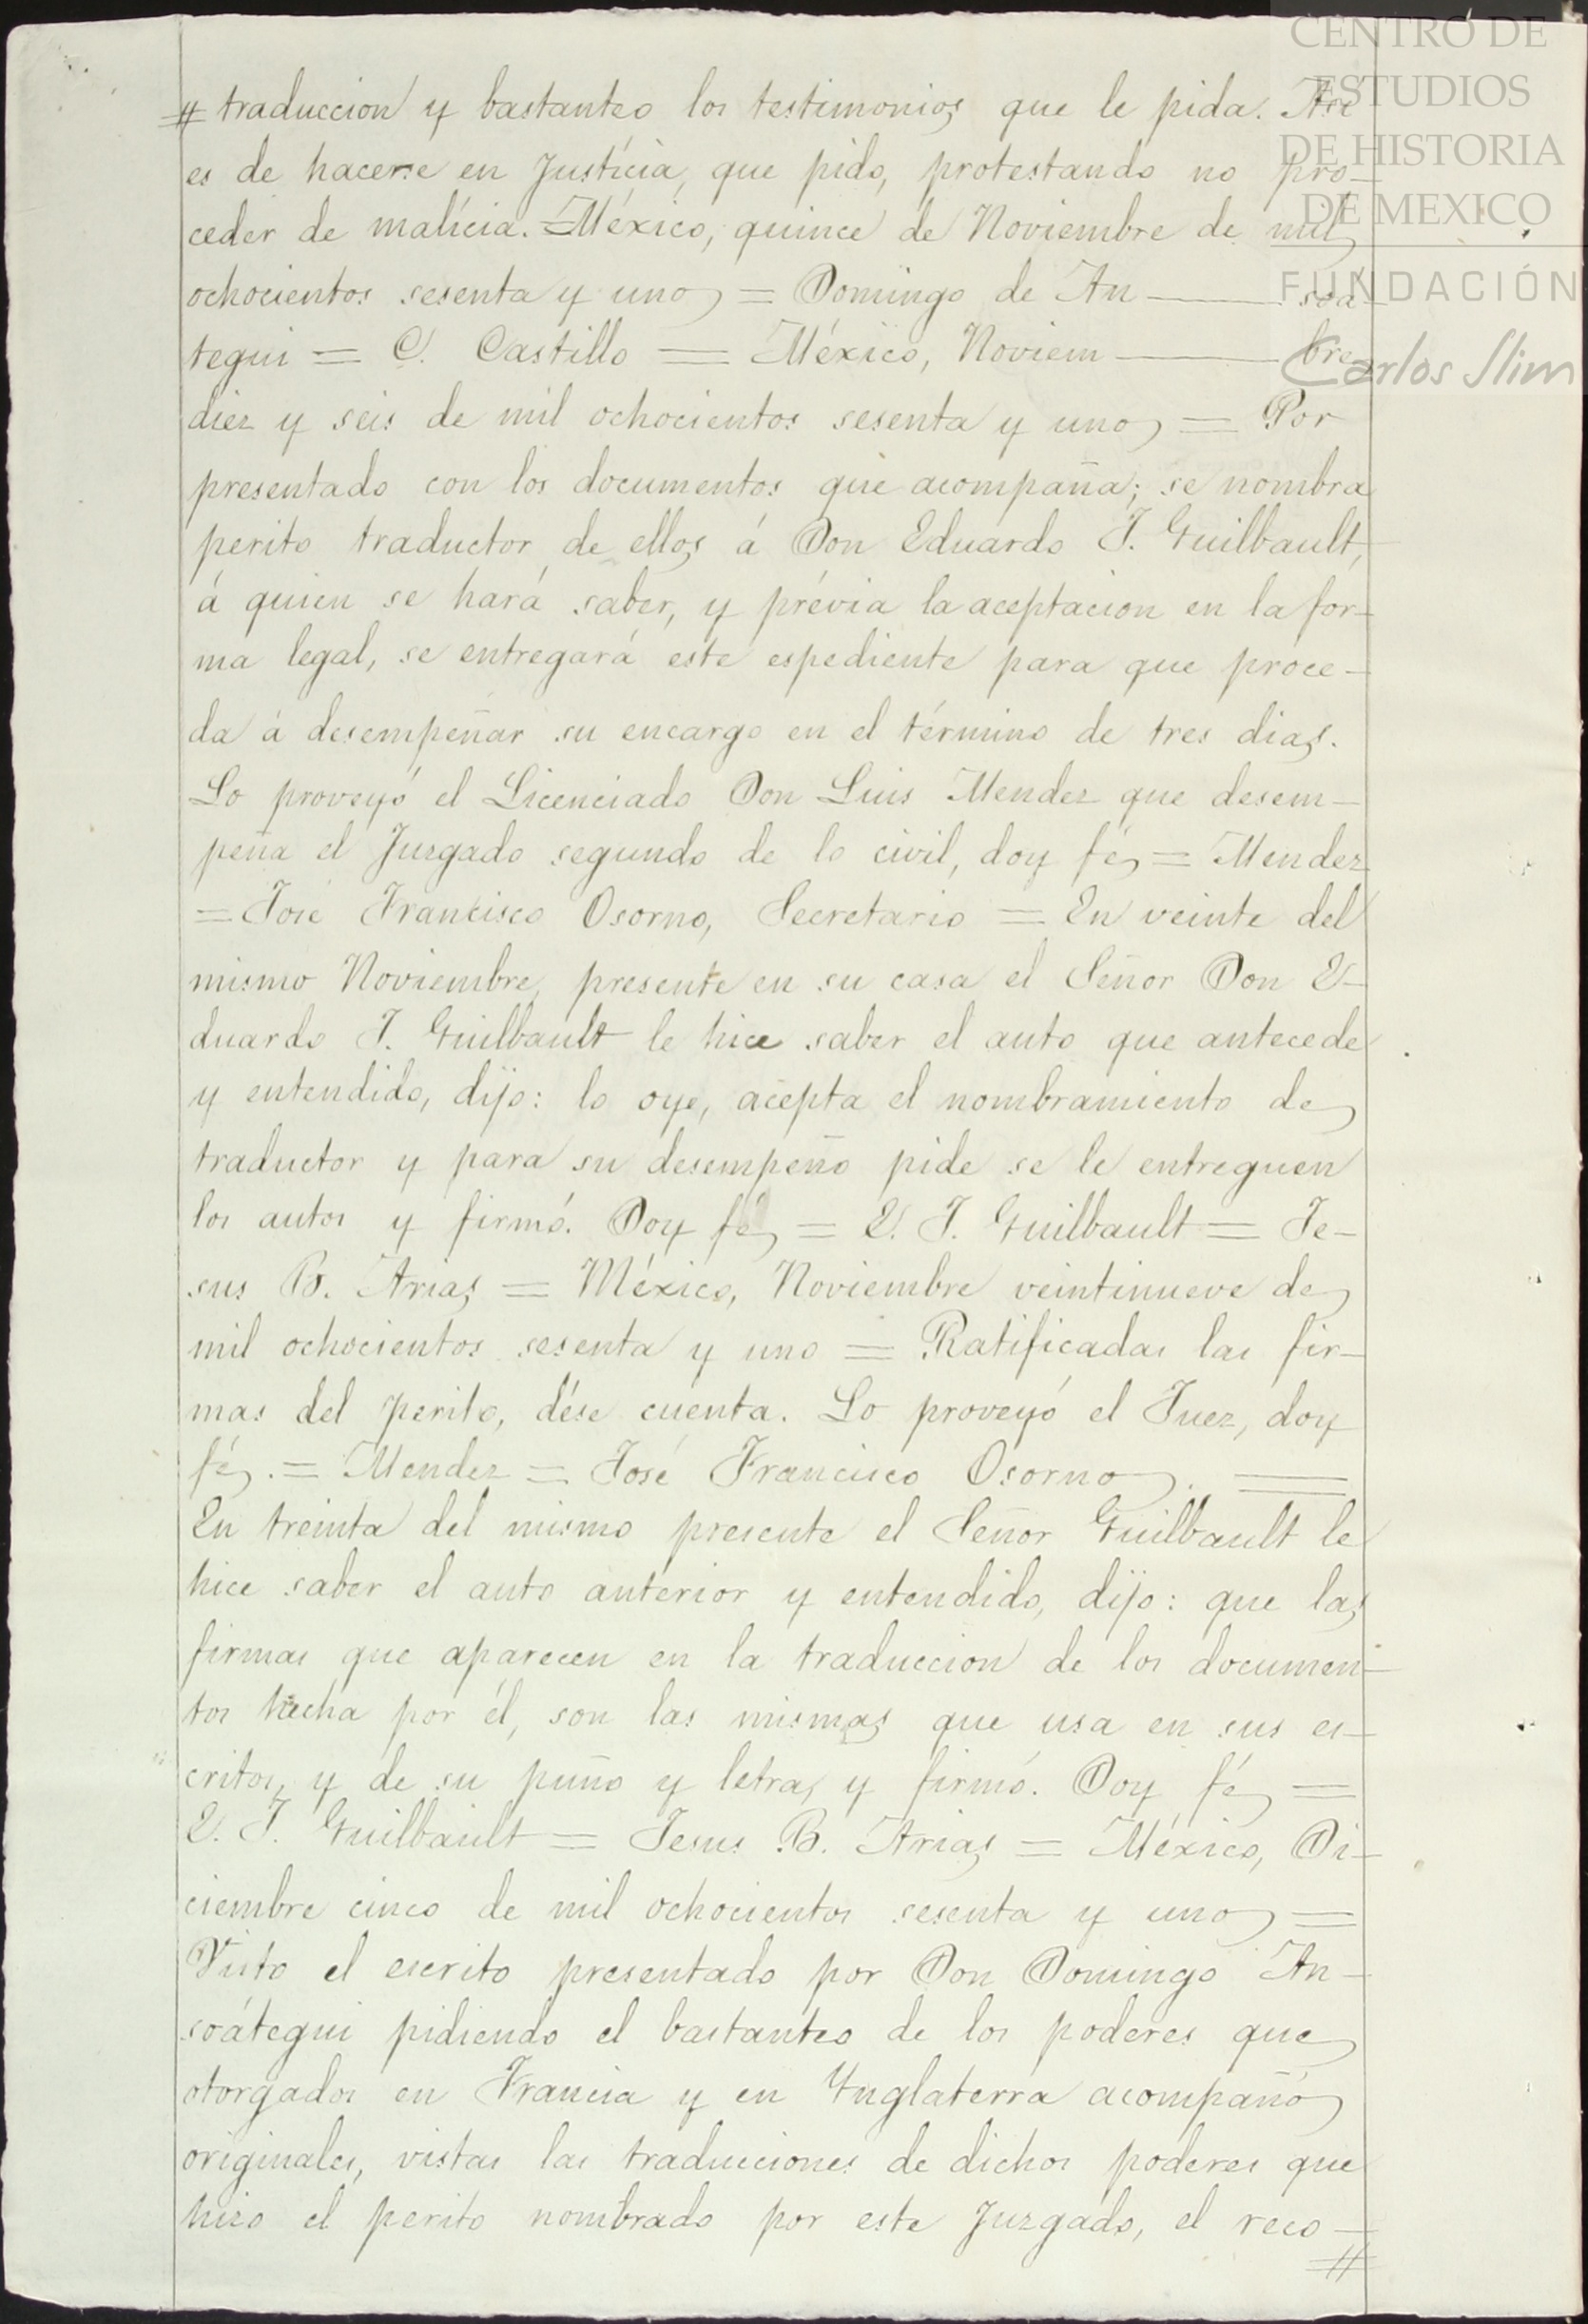 CENTRO DE
ESTUDIOS
DE HISTORIA
DE MEXICO
FUNDACIÓN
Carlos Slim
# traduccion y bastanteo los testimonios que le pida. Asi
es de hacerse en Justícia, que pido, protestando no pro-
ceder de malícia. = México, quince de Noviembre de mil
ochocientos sesenta y uno = Domingo de An — soa
tegui = C. Castillo = México, Noviem — bre
diez y seis de mil ochocientos sesenta y uno = Por
presentado con los documentos que acompaña; se nombra
perito traductor de ellos á Don Eduardo J. Guilbault,
á quien se hará saber, y prévia la aceptacion en la for-
ma legal, se entregará este espediente para que proce-
da á desempeñar su encargo en el término de tres dias.
Lo proveyó el Licenciado Don Luis Mendez que desem-
peña el Juzgado segundo de lo civil, doy fé = Mendez
= José Francisco Osorno, Secretario = En veinte del
mismo Noviembre, presente en su casa el Señor Don E-
duardo J. Guilbault le hice saber el auto que antecede
y entendido, dijo: lo oye, acepta el nombramiento de
traductor y para su desempeño pide se le entreguen
los autos y firmó. Doy fé = E. J. Guilbault = Je-
sus B. Arias = México, Noviembre veintinueve de
mil ochocientos sesenta y uno = Ratificadas las fir-
mas del perito, dése cuenta. Lo proveyó el Juez, doy
fé. = Mendez = José Francisco Osorno. =
En treinta del mismo presente el Señor Guilbault le
hice saber el auto anterior y entendido, dijo: que las
firmas que aparecen en la traduccion de los documen-
tos hecha por él, son las mismas que usa en sus es-
critos, y de su puño y letra, y firmó. Doy fé =
E. J. Guilbault = Jesus B. Arias = México, Di-
ciembre cinco de mil ochocientos sesenta y uno =
Visto el escrito presentado por Don Domingo An-
soátegui pidiendo el bastanteo de los poderes que
otorgados en Francia y en Ynglaterra acompañó
originales, vistas las traducciones de dichos poderes que
hizo el perito nombrado por este Juzgado, el reco-
#